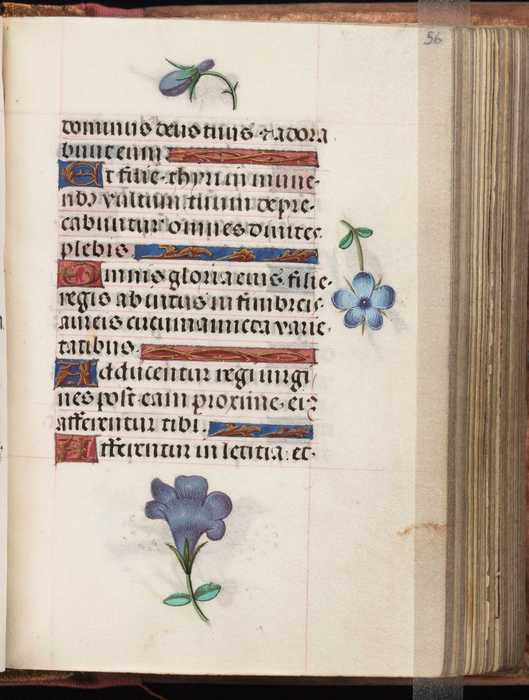 56
dominus deus tuus · & adora
bunt eum
Et filie · thyri in mune-
ribz vultum tuum depre-
cabuntur omnes diuites
plebis ·
Omnis gloria eius filie
regis ab intus in fimbreis
aureis circumamicta varie-
tatibus ·
Adducentur regi uirgi
nes post eam proxime eiz
afferentur tibi ·
Afferentur in leticia : et ·